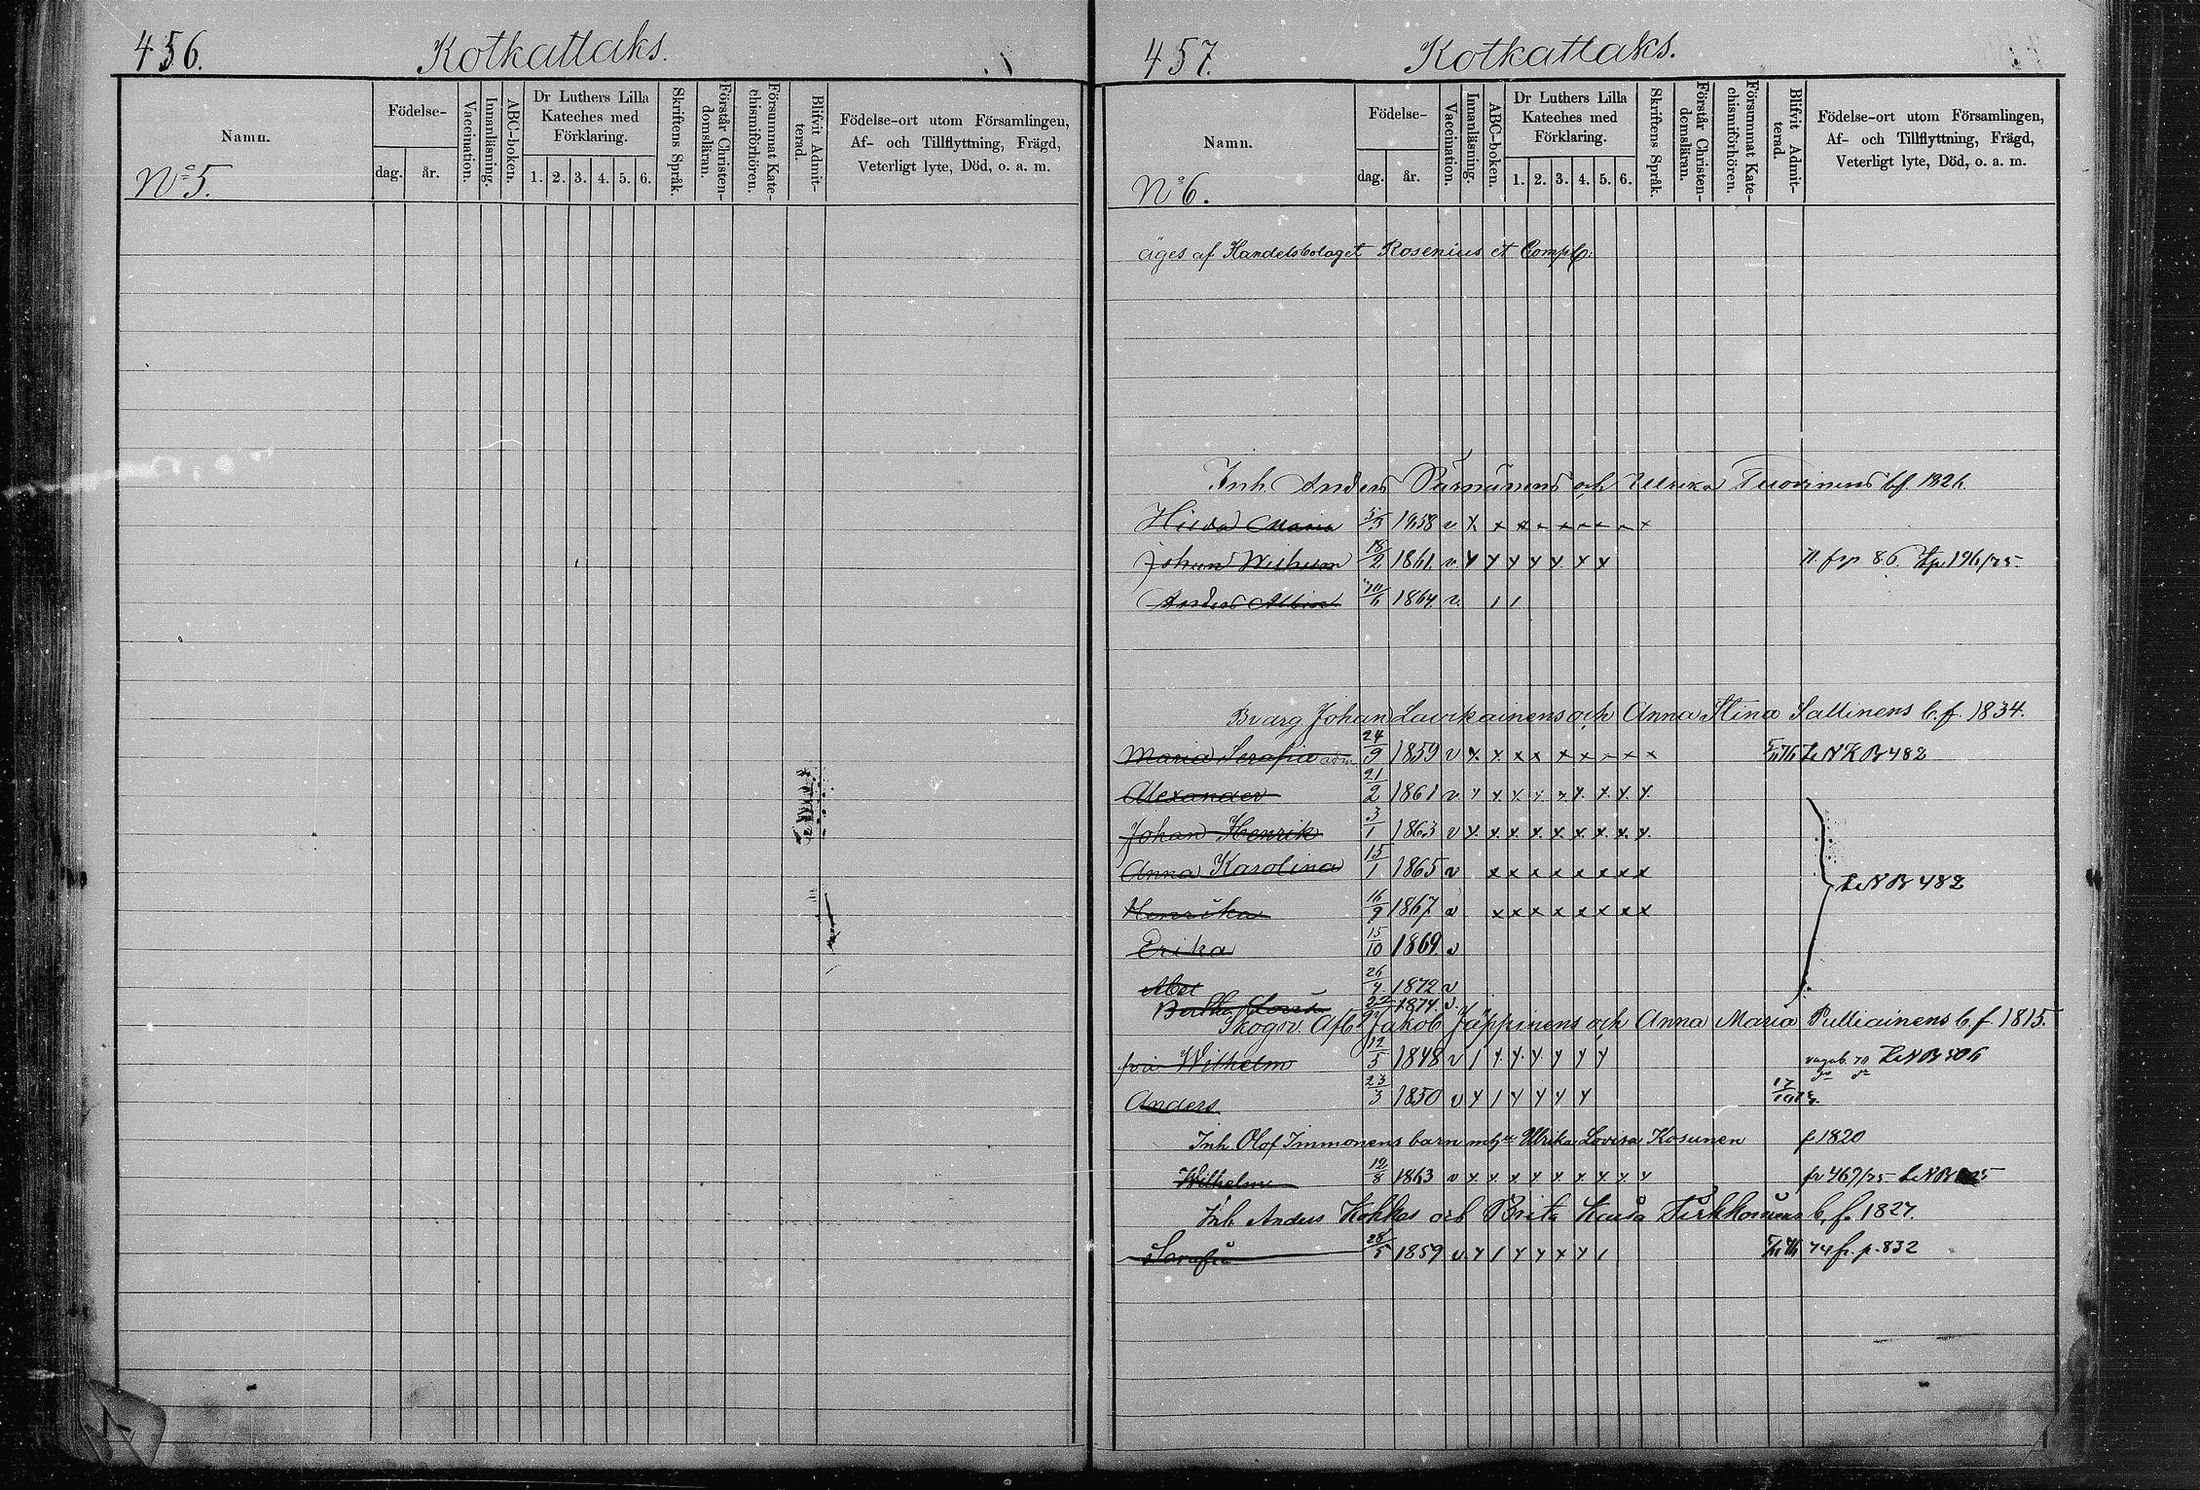 456. Kotkattaks.
Namn. Födelse- dag. år. Vaccination. Innanläsning. ABC-boken. Dr Luthers Lilla Kateches med Förklaring. 1. 2. 3. 4. 5. 6. Skriftens Språk. Förstår Christendomsläran. Försummat Katechismiförhören. Blifvit Admitterad. Födelse-ort utom Församlingen, Af- och Tillflyttning, Frägd, Veterligt lyte, Död, o. a. m.
No 5.
457. Kotkattaks.
Namn. Födelse- dag. år. Vaccination. Innanläsning. ABC-boken. Dr Luthers Lilla Kateches med Förklaring. 1. 2. 3. 4. 5. 6. Skriftens Språk. Förstår Christendomsläran. Försummat Katechismiförhören. Blifvit Admitterad. Födelse-ort utom Församlingen, Af- och Tillflyttning, Frägd, Veterligt lyte, Död, o. a. m.
No 6.
äges af Handelsbolaget Rosenius et Comp
Inh. Anders Pärnänens och Ulrika Tuovinens bf. 1826.
Hilda Maria 1858 v x x x x x x x
Johan Wilhelm 18/2 1861. v. x x x x x x x
Anders Albin 1864. v. 1 1
Johan Laukainens och Anna Stina Sallinens b.f. 1834.
Maria Serafia adm 24/9 1859 v x x x x x x x x 482
Alexander 21/2 1861 v x x x x x x x x x
Johan Henrik 3/1 1863 v x x x x x x x x x
Anna Karolina 15/1 1865 v x x x x x x x x
Henrika 16/9 1867 v x x x x x x x x
482
Erika 15/10 1869. v
Abel 26/4 1872 v
22 1874. v.
Skogsv. Jakob Jäppinens och Anna Maria Pulliainens b.f. 1815.
Wilhelm 12/5 1848 v 1 x x x x x x
Anders 23/3 1850 v x 1 x x x x
Inh. Olof Immonens barn Ulrika Lovisa Kosunen f 1820
Wilhelm 12/8 1863 v x x x x x x x x x
Inh. Anders Kokkos och Brita b.f. 1827.
Serafia 28/5 1859 v. x 1 x x x x 1 74 fr. p. 832